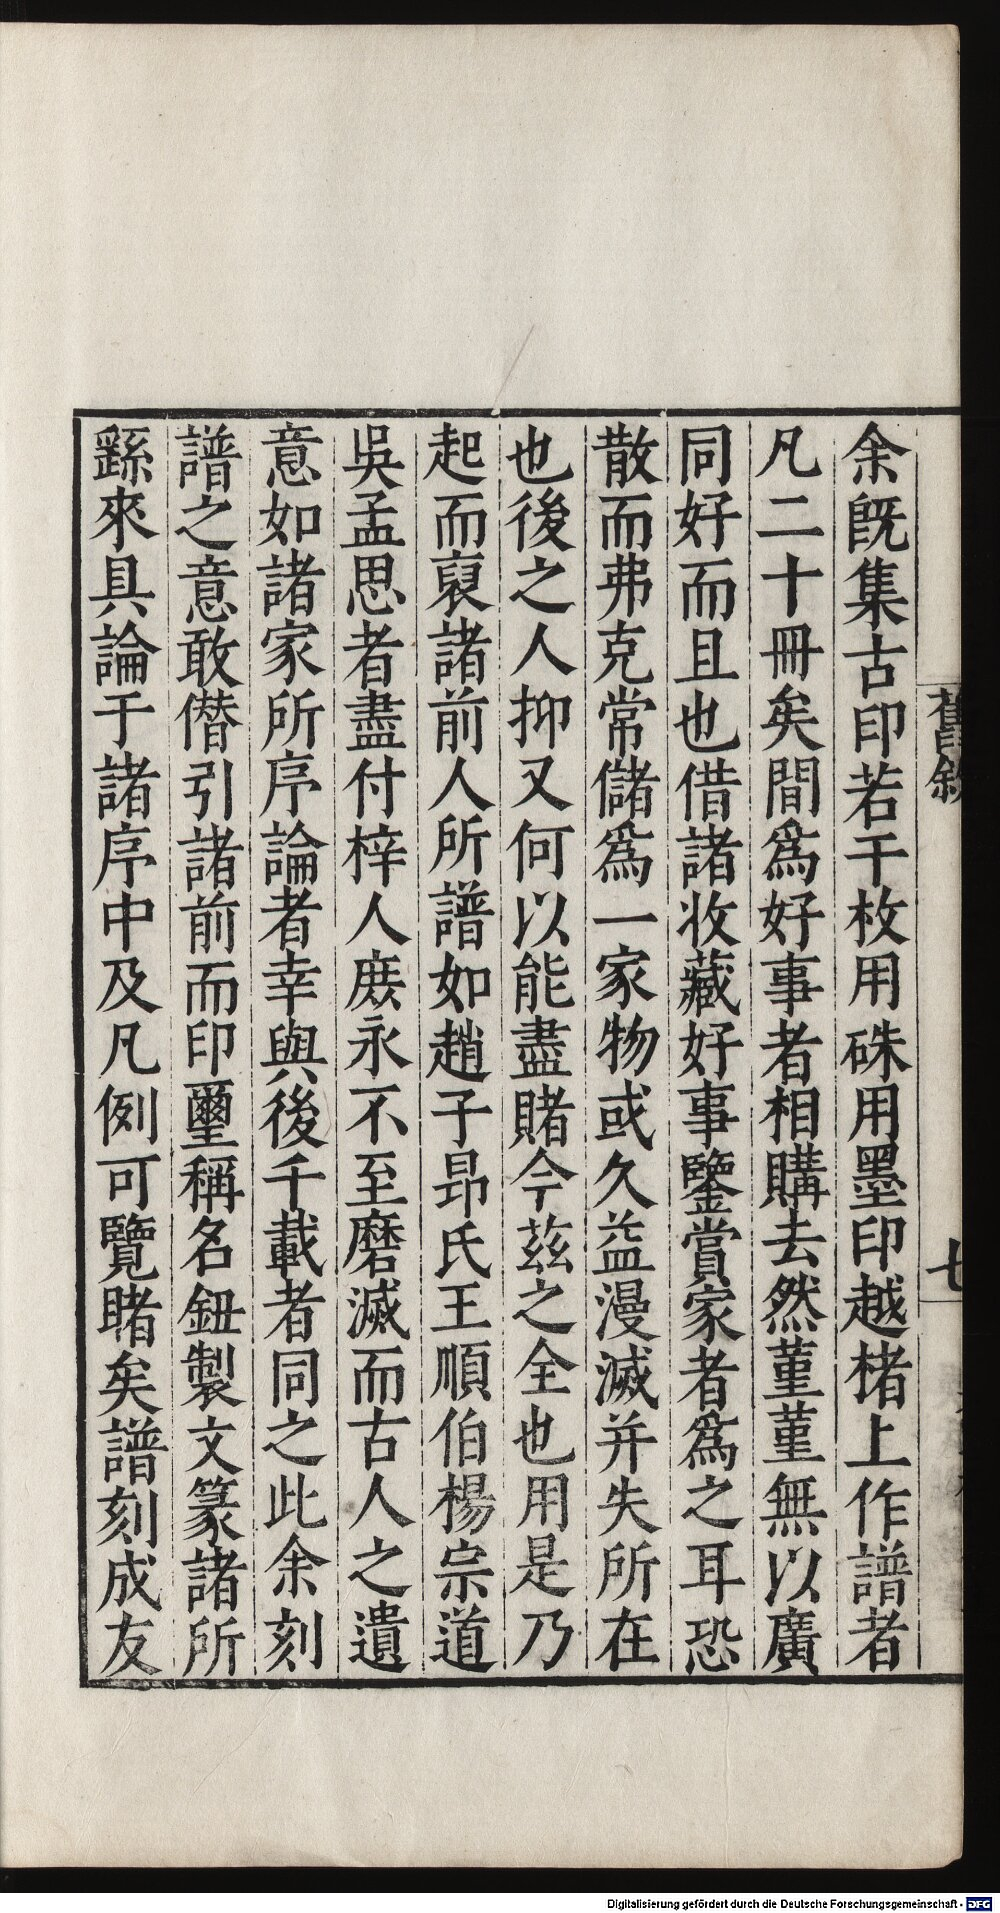 余旣集古印若干枚用硃用墨印越楮上作譜者
凡二十冊矣間爲好事者相購去然菫菫無以廣
同好而且也借諸收藏好事鑒賞家者爲之耳恐
散而弗克常儲爲一家物或久益漫滅并失所在
也後之人抑又何以能盡賭今茲之全也用是乃
起而裒諸前人所譜如趙子昂氏王順伯楊宗道
吳孟思者盡付梓人庻永不至磨滅而古人之遺
意如諸家所序論者幸與後千載者同之此余刻
譜之意敢僭引諸前而印璽稱名鈕製文篆諸所
繇來具論于諸序中及凡例可覽睹矣譜刻成友
舊敘
七
Digitalisierung gefördert durch die Deutsche Forschungsgemeinschaft - DFG